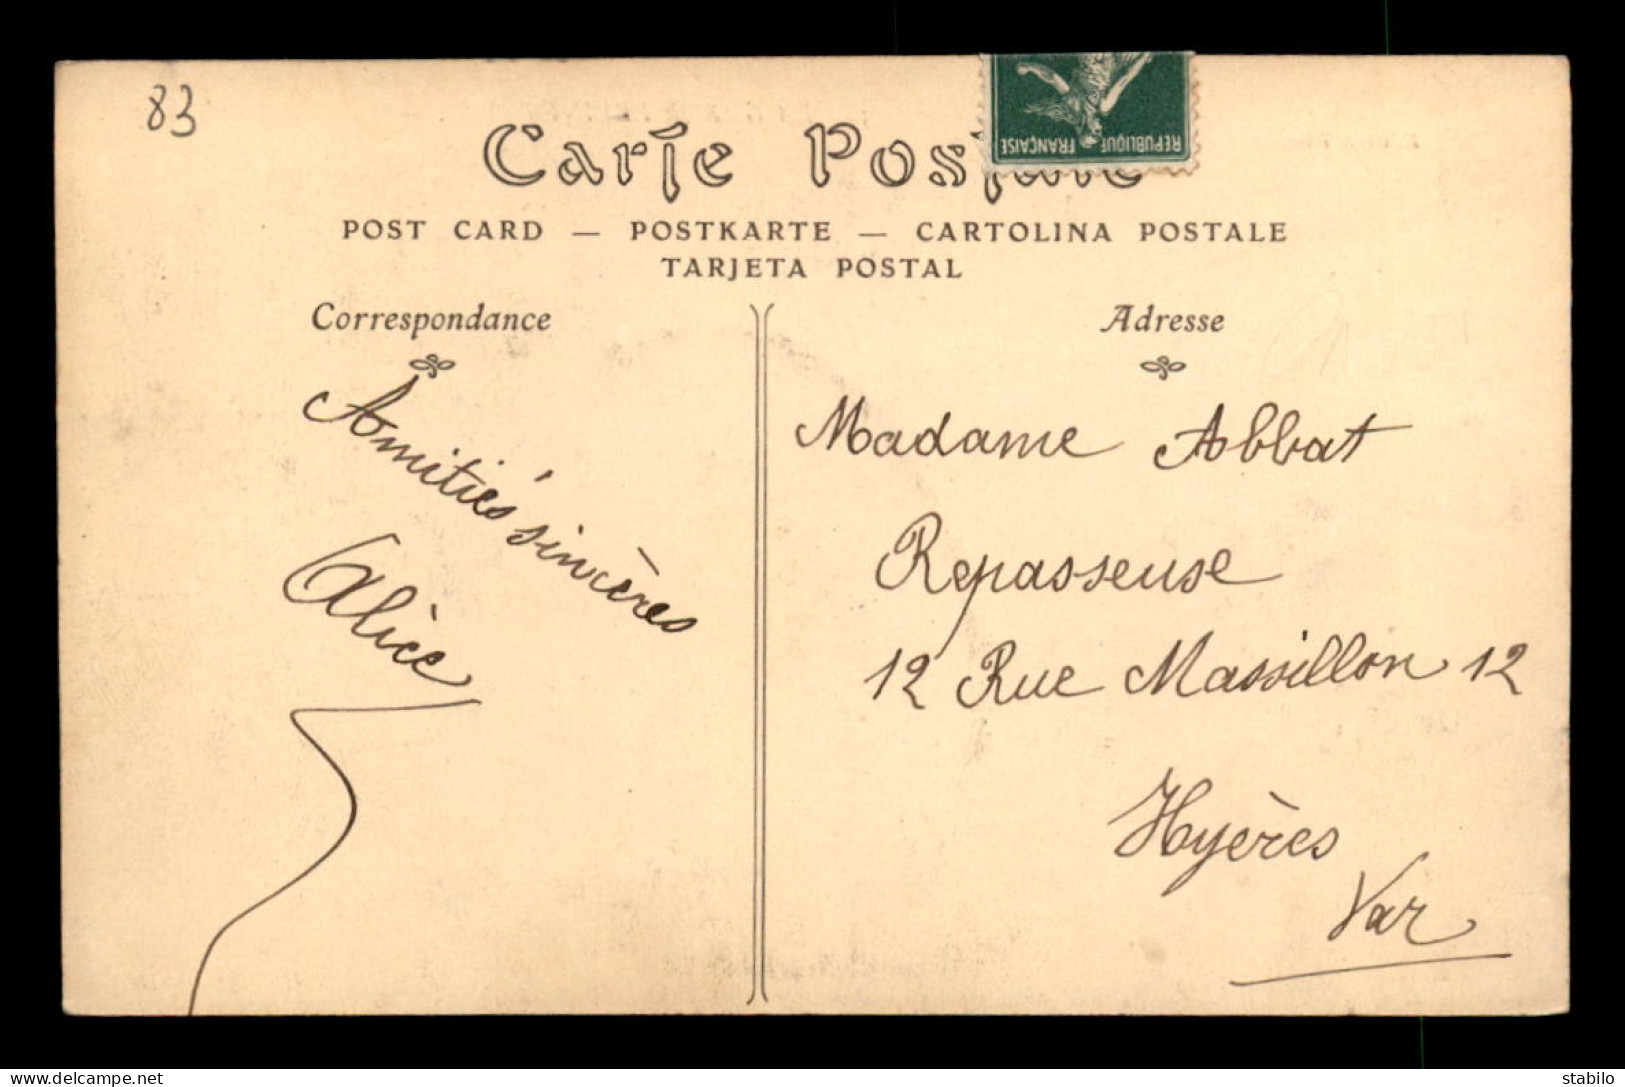 83
Carte Postale
REPUBLIQUE FRANÇAISE
POST CARD — POSTKARTE — CARTOLINA POSTALE
TARJETA POSTAL
Correspondance
Amitiés sincères
Alice
Adresse
Madame Abbat
Repasseuse
12 Rue Massillon 12
Hyères
Var
www.delcampe.net
stabilo